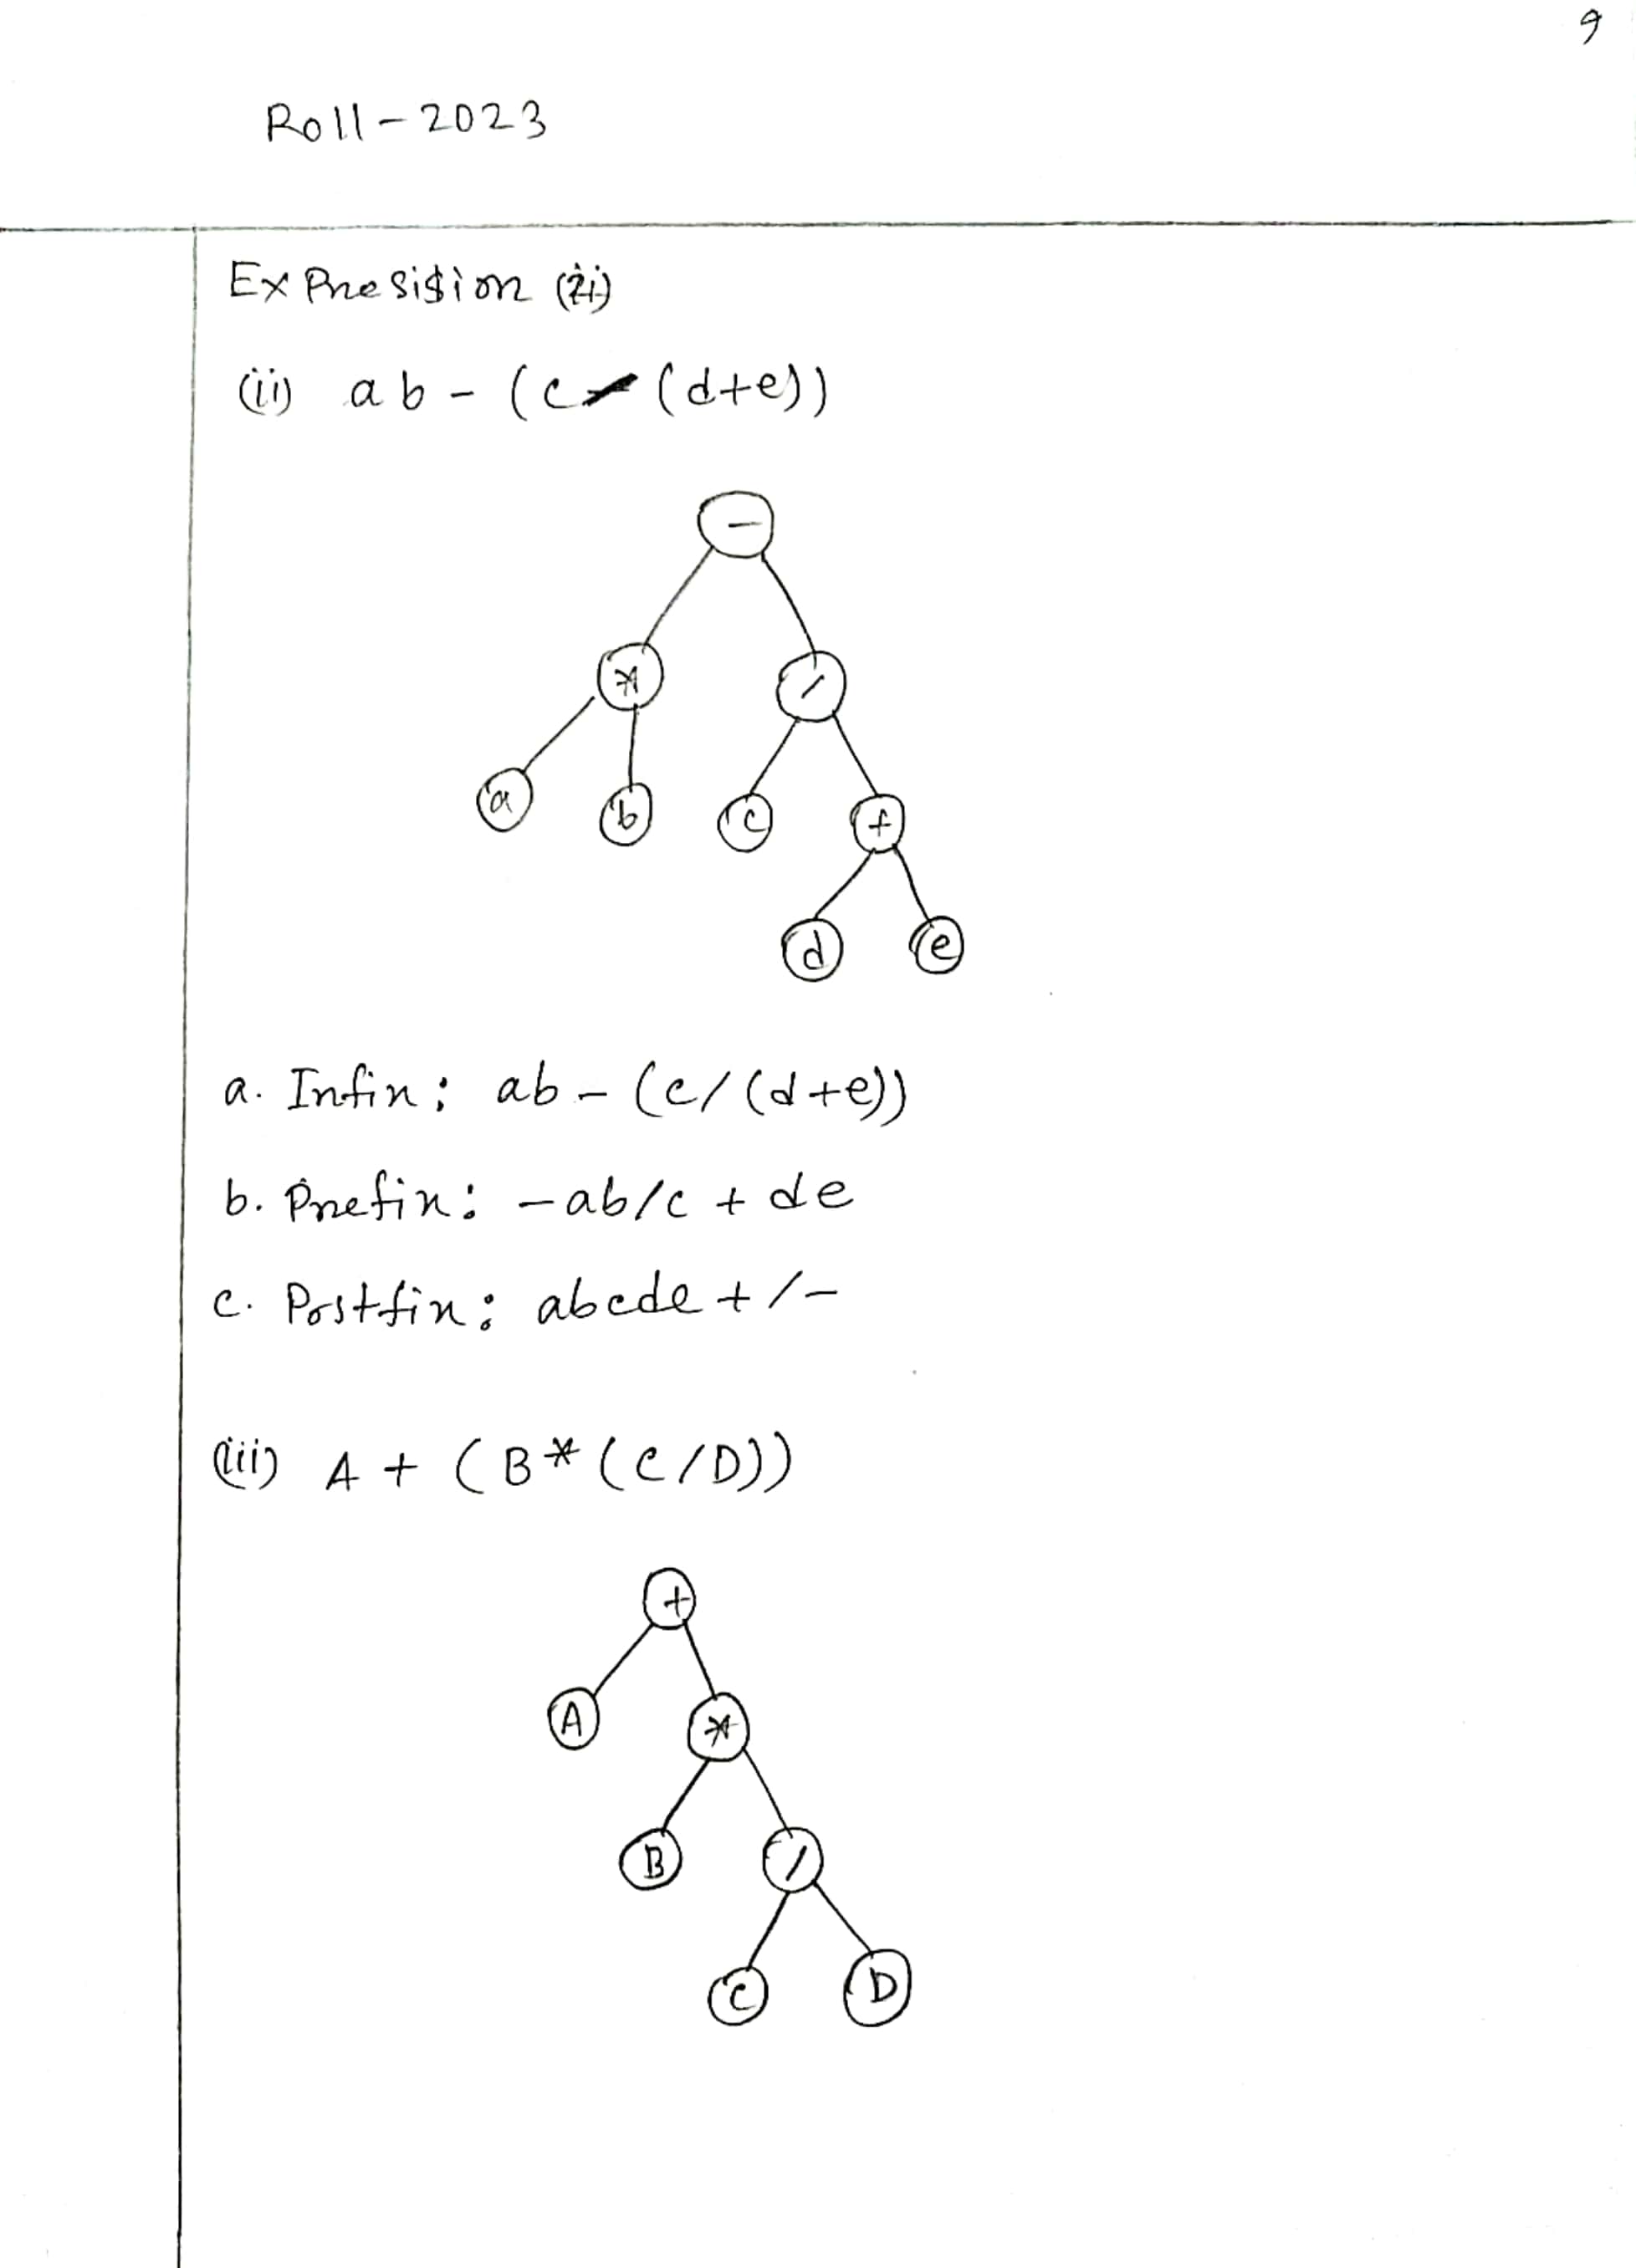 9
Roll-2023
Expresision (ii)
(ii) ab - (c/(d+e))
-
* /
a b c +
d e
a. Infix: ab - (c/(d+e))
b. Prefix: -ab/c + de
c. Postfix: abcde +/-
(iii) A + (B*(C/D))
+
A *
B /
C D